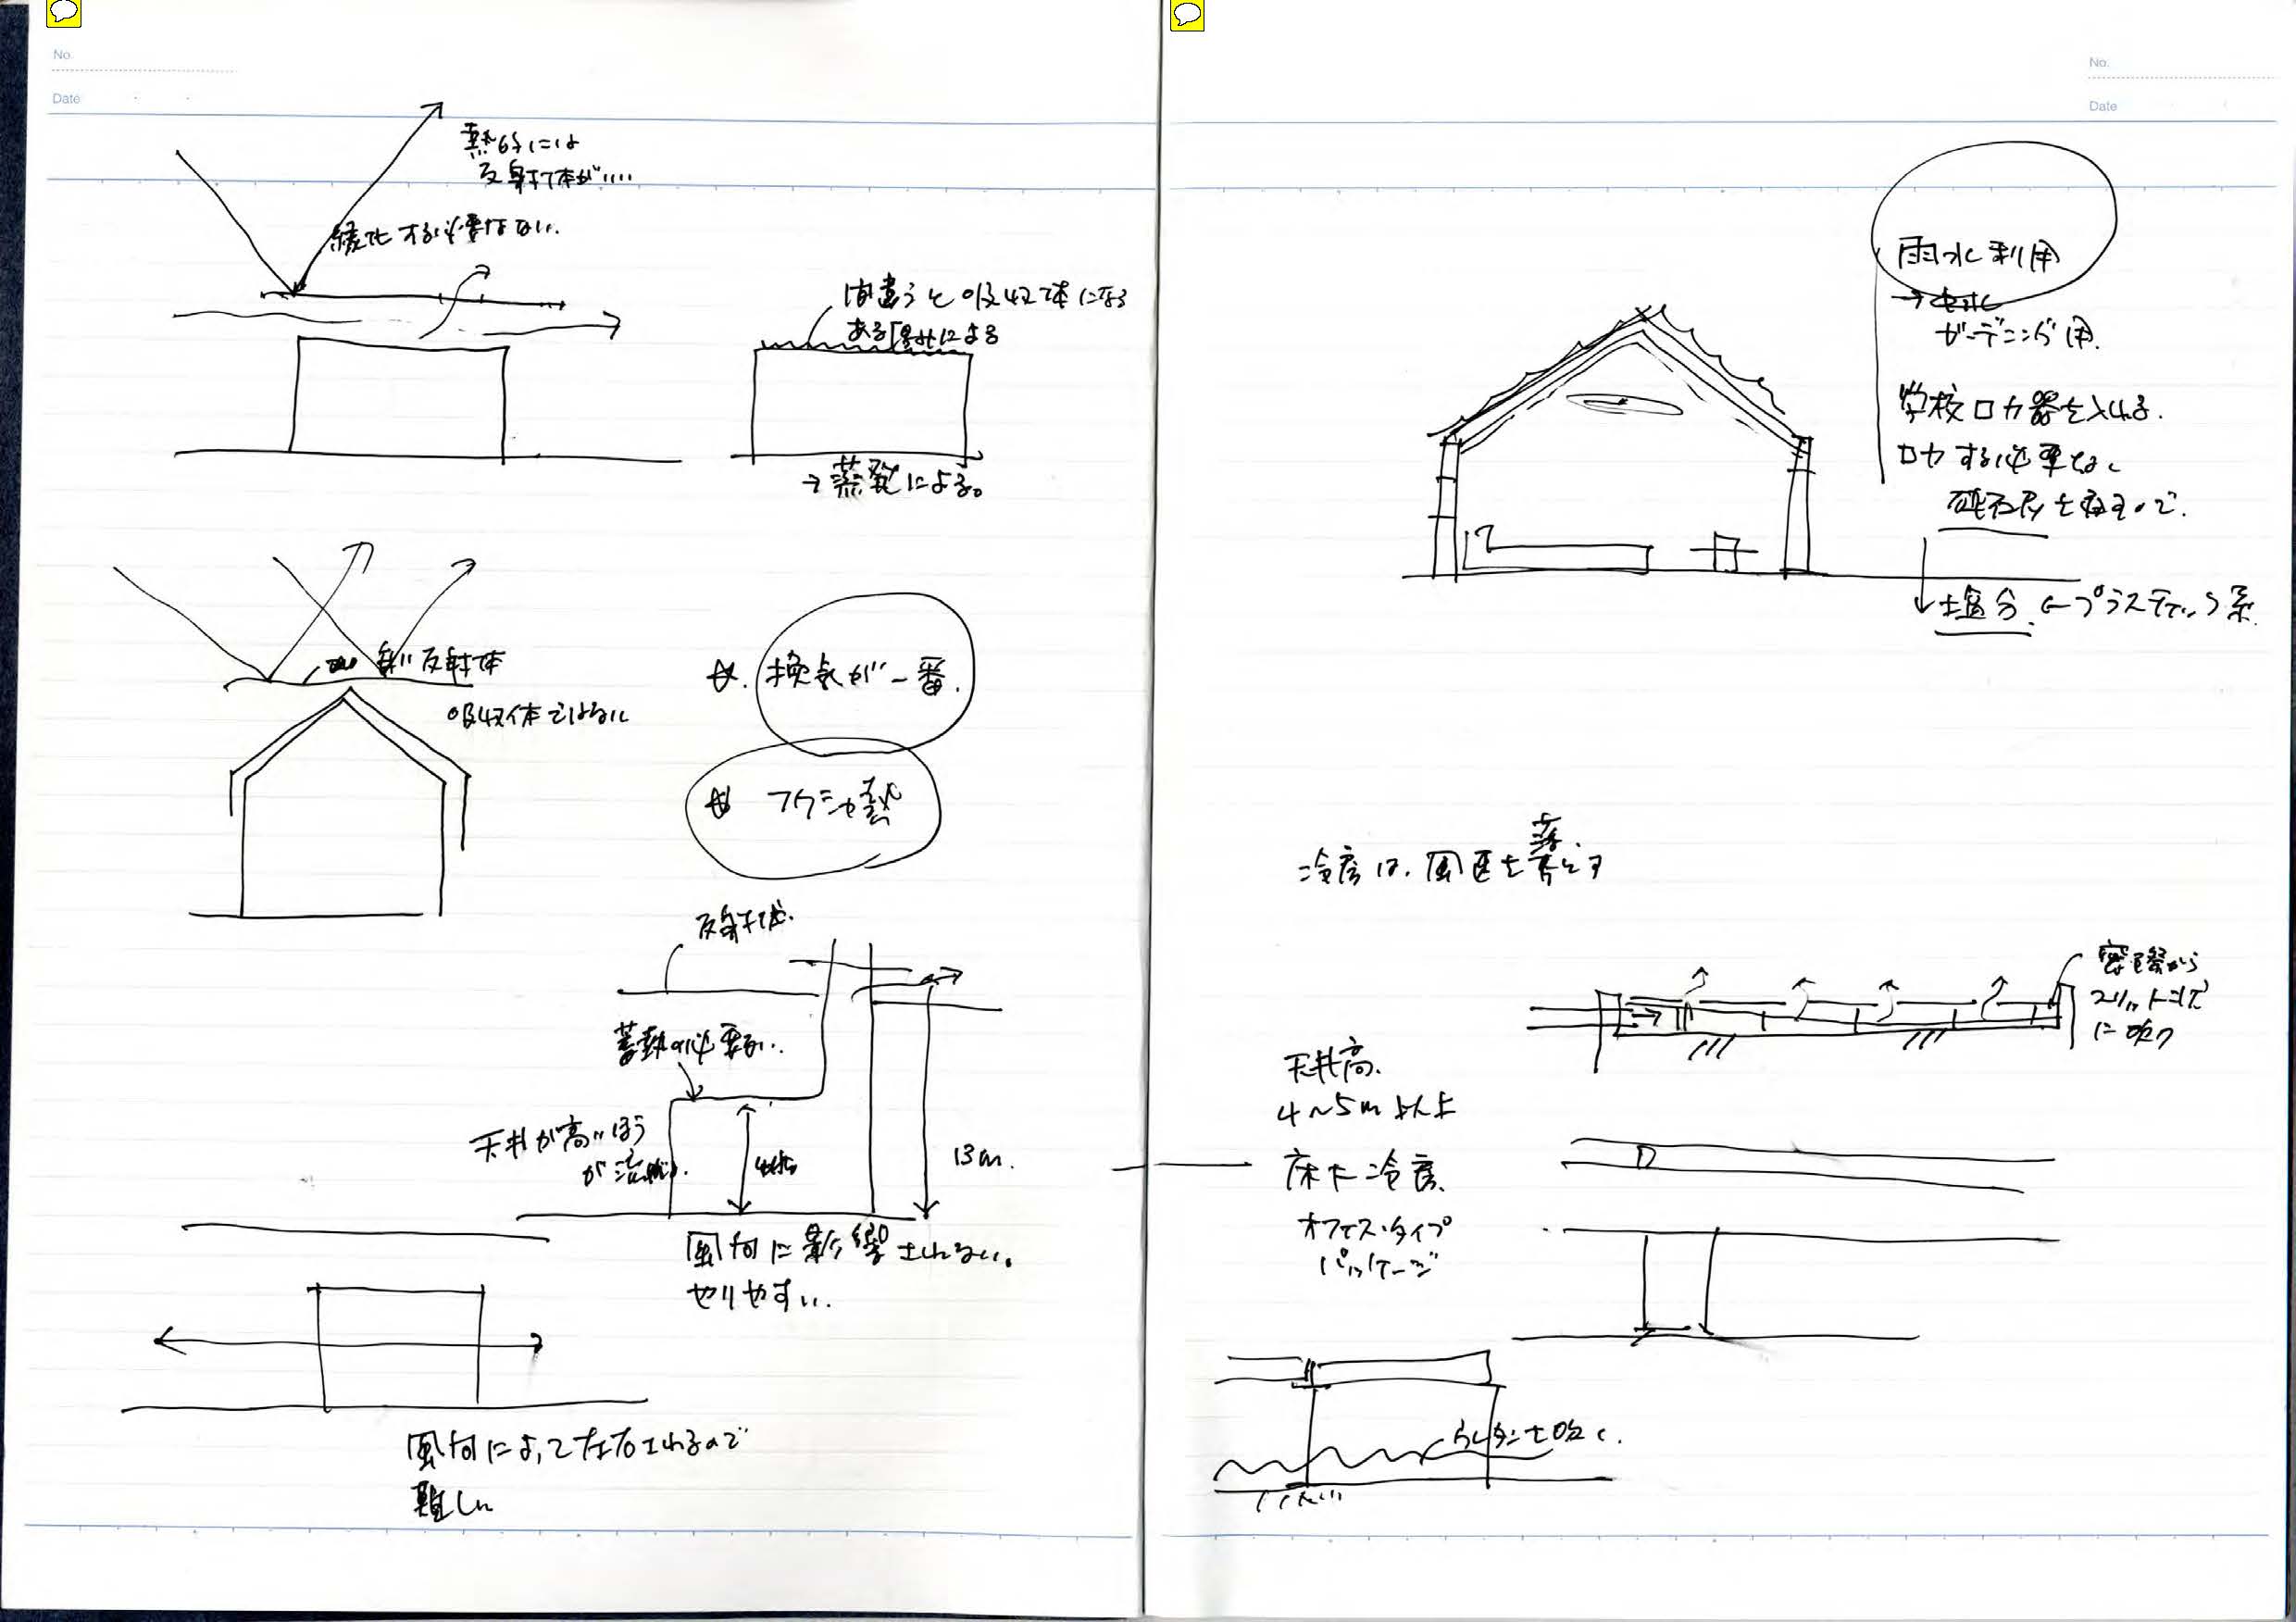 No.
Date
熱的には
反射体が....
緑化する必要はない.
間違うと吸収体になる
ある
による
→蒸発による。
白い反射体
吸収体ではない
☆.換気が一番.
☆ フクシャ熱
反射体.
蓄熱の必要ない..
天井が高いほう
が
13m.
風向に影響されない。
やりやすい.
風向によって左右されるので
難しい
No.
Date
雨水利用
→
ガーデニング用.
学校ロカ器を入れる.
ロカする必要なく
を
塩分 ←プラスティック系.
冷房は.風速を落とす
から
スリット状
に吹く
天井高.
4~5m以上
床下冷房.
オフィス・タイプ
パッケージ
ウレタンを吹く.